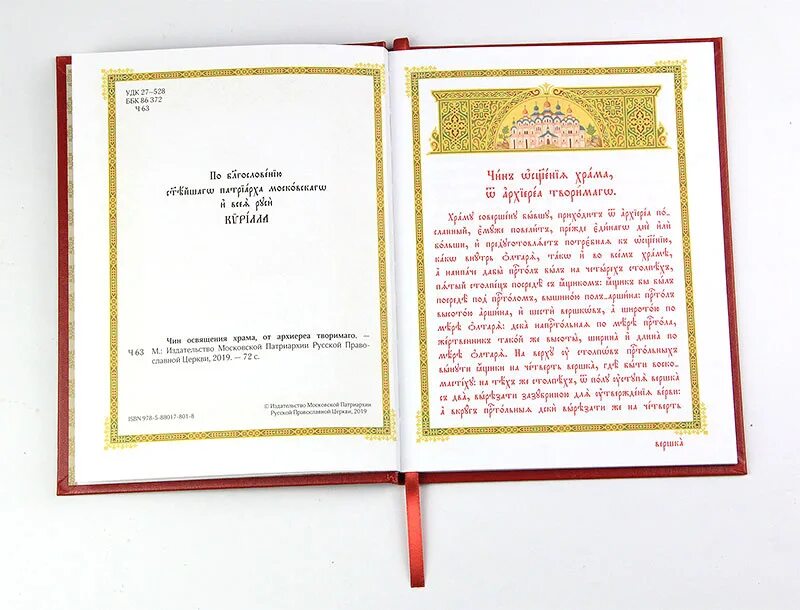 УДК 27–528
ББК 86 372
Ч 63
По бл҃гослове́нїю
ст҃ѣ́йшагѡ патрїа́рха моско́вскагѡ
и҆ всеѧ̀ рꙋсѝ
КѴРІ́ЛЛА
Чин освящения храма, от архиерея творимаго. —
Ч 63 М.: Издательство Московской Патриархии Русской Право-
славной Церкви, 2019. — 72 с.
© Издательство Московской Патриархии
Русской Православной Церкви, 2019
ISBN 978-5-88017-801-8
Чи́нъ ѡ҆сщ҃е́нїѧ хра́ма,
ѿ а҆рхїере́а твори́магѡ.
Хра́мꙋ соверше́нꙋ бы́вшꙋ, прихо́дитъ ѿ а҆рхїере́а по́-
сланный, є҆мꙋ́же повели́тъ, пре́жде є҆ди́нагѡ днѐ и҆лѝ
бо́льши, и҆ предꙋготовлѧ́етъ потрє́бнаѧ къ ѡ҆сщ҃е́нїю,
ка́кѡ внꙋ́трь ѻ҆лтарѧ̀, та́кѡ и҆ во все́мъ хра́мѣ,
а҆ наипа́че да́бы прⷭ҇то́лъ бы́лъ на четы́рехъ столпѣ́хъ,
пѧ́тый столпе́цъ посредѣ̀ съ ꙗ҆́щикомъ: ꙗ҆́щикъ бы бы́лъ
посредѣ̀ под̾ прⷭ҇то́ломъ, вышино́ю пол̾-а҆рши́на: прⷭ҇то́лъ
высото́ю а҆рши́на, и҆ шестѝ вершкѡ́въ, а҆ широто́ю по
мѣ́рѣ ѻ҆лтарѧ̀: дска̀ напрⷭ҇то́льнаѧ по мѣ́рѣ прⷭ҇то́ла,
же́ртвенникъ тако́й же высоты̀, ширина̀ и҆ длина̀ по
мѣ́рѣ ѻ҆лтарѧ̀. На верхꙋ̀ ᲂу҆ столпѡ́въ прⷭ҇то́льныхъ
вы́нꙋти ꙗ҆́щики на че́тверть вершка̀, гдѣ̀ бы́ти воско-
масті́хꙋ: на тѣ́хъ же столпѣ́хъ, ѿ по́лꙋ ᲂу҆стꙋпѧ̀ вершка̀
съ два̀, вы́рѣзати зазꙋ́бриною длѧ̀ ᲂу҆твержде́нїѧ ве́рви:
а҆ вкрꙋ́гъ прⷭ҇то́льныѧ дскѝ вы́рѣзати же на че́тверть
вершка̀